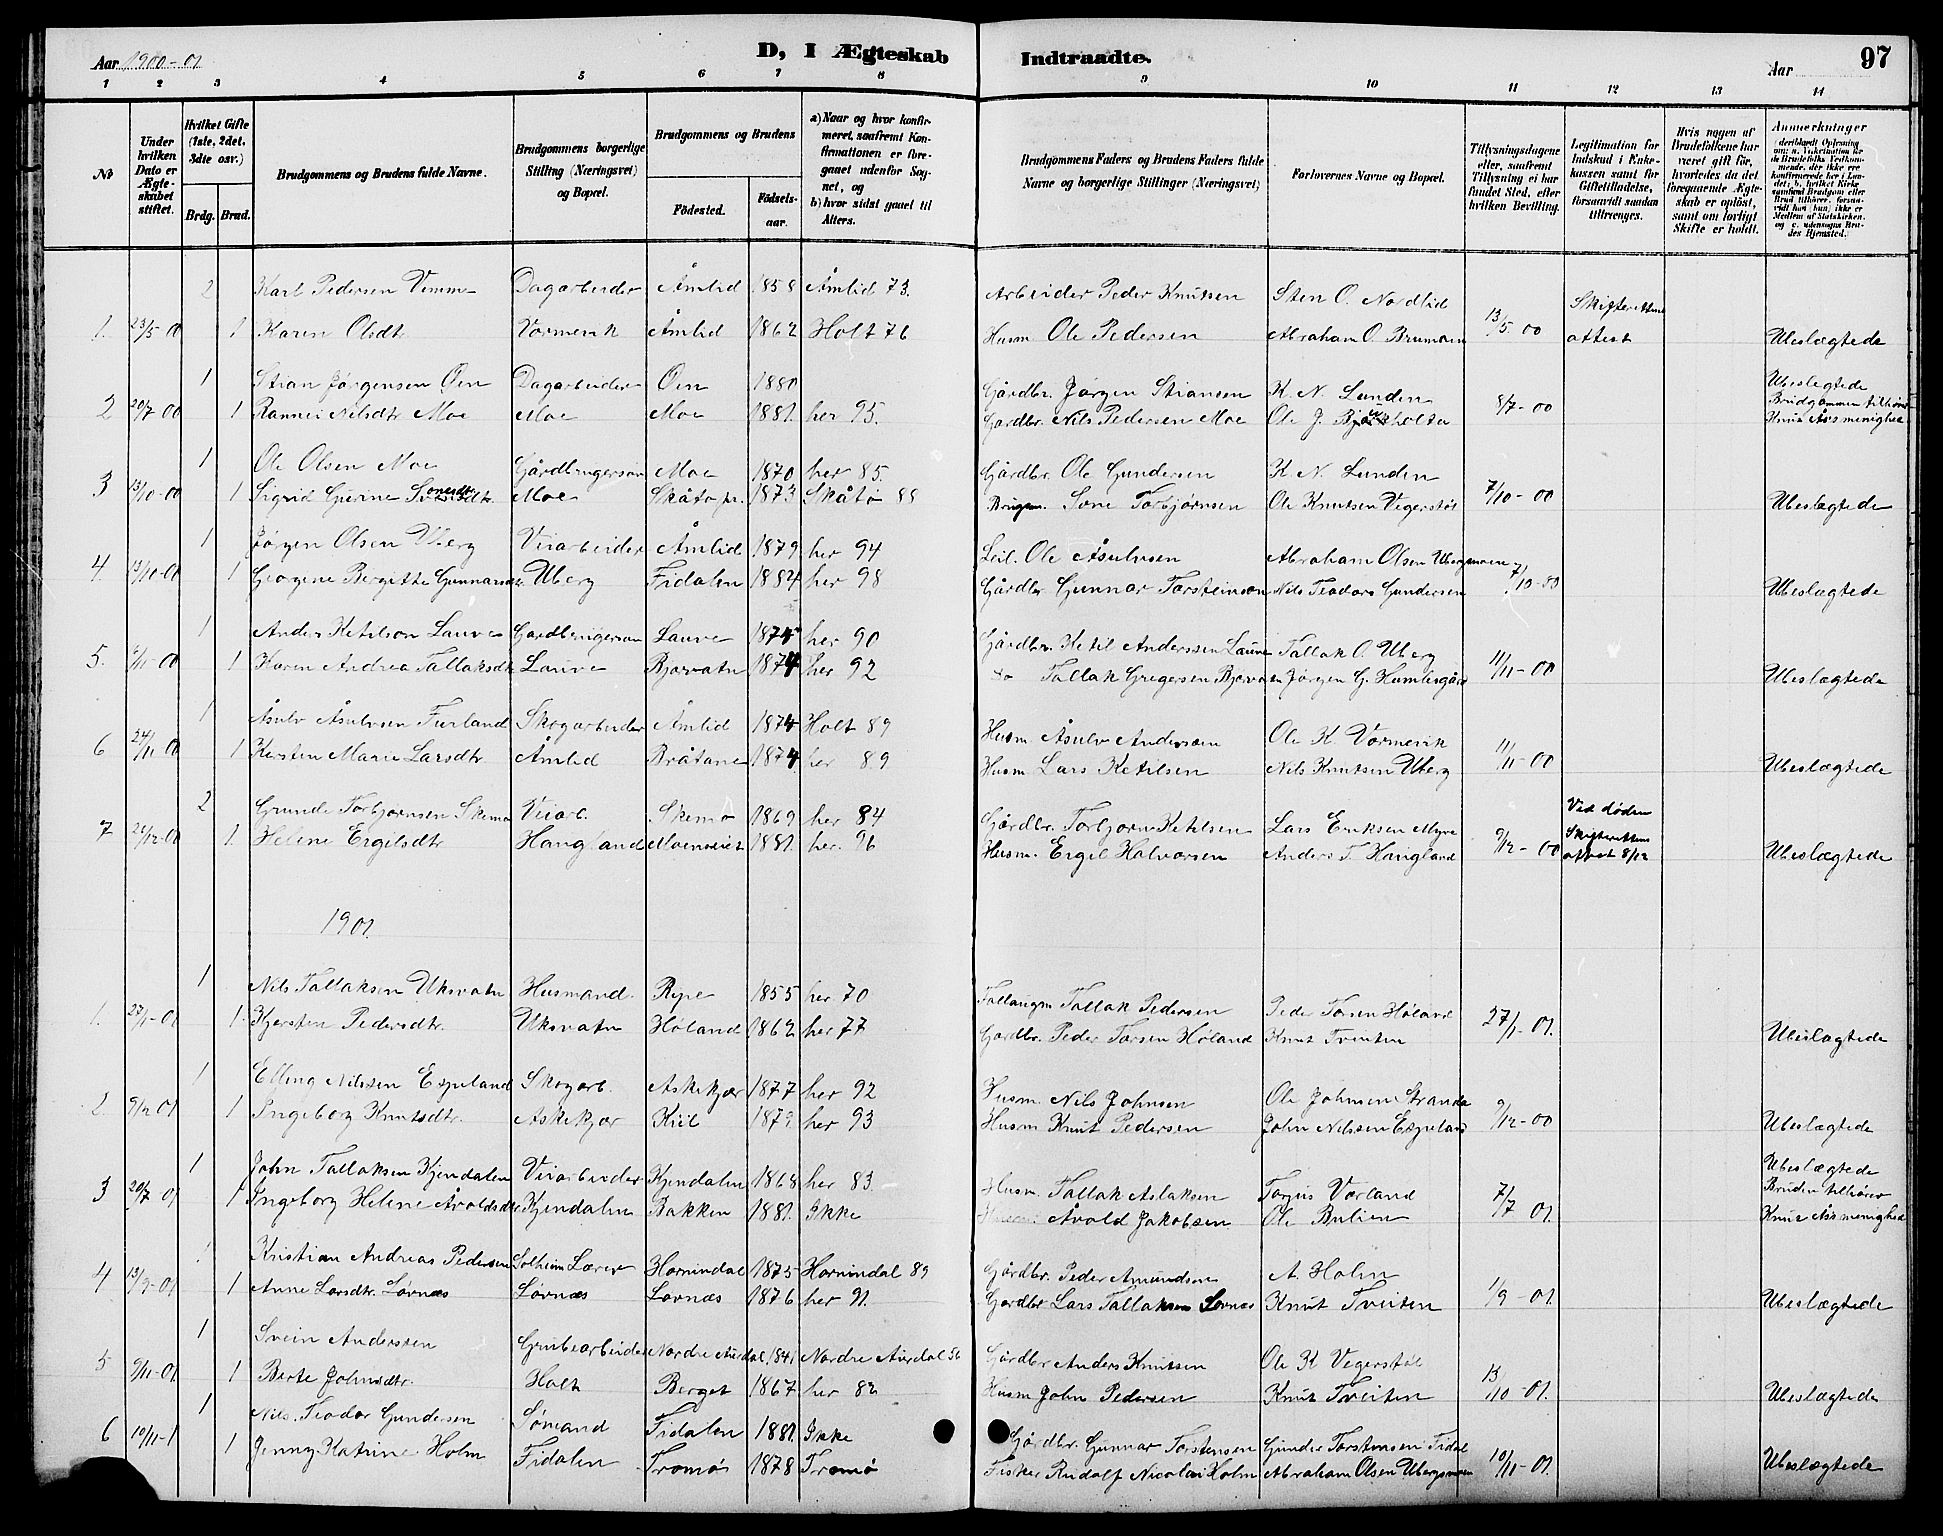 Aar 1900-01 D, I Ægteskab Indtraadte. Aar 97
1 2 3 4 5 6 7 8 9 10 11 12 13 14
No
Under hvilken Dato er Ægteskabet stiftet.
Hvilket Gifte (1ste, 2det, 3die osv.)
Brdg. Brud.
Brudgommens og Brudens fulde Navne.
Brudgommens borgerlige Stilling (Næringsvei) og Bopæl.
Brudgommens og Brudens
Födested. Födselsaar.
a) Naar og hvor konfirmeret, saafremt Konfirmationen er foregaaet udenfor Sognet, og
b) hvor sidst gaaet til Alters.
Brudgommens Faders og Brudens Faders fulde Navne og borgerlige Stillinger (Næringsvei)
Forlovernes Navne og Bopæl.
Tillysningsdagene eller, saafremt Tillysning ei har fundet Sted, efter hvilken Bevilling.
Legitimation for Indskud i Enkekassen samt for Giftetilladelse, forsaavidt saadan tiltrænges.
Hvis nogen af Brudefolkene har været gift før, hvorledes da det foregaaende Ægteskab er oplöst, samt om lovligt Skifte er holdt.
Anmerkninger
2 Karl Pedersen Vimme Dagarbeider Åmlid 1858 Åmlid 73. Arbeider Peder Knutsen Sten O. Nordlid Skifterettens
1. 23/5 00 1 Karen Olsdtr Vormevik Åmlid 1862 Holt 76 Husm Ole Pedersen Abraham O. Brumoen 13/5-00 attest Ubeslægtede
1 Stian Jørgensen Øen Dagarbeider Øen 1880 Gårdbr. Jørgen Stiansen K. N. Lunden Ubeslegtede
2 20/7 00 1 Rannei Nilsdtr Moe Moe Moe 1881. her 95. Gardbr. Nils Pedersen Moe Ole J. 8/7-00 Brudgommen tilhører Knut Ås's menighed
1 Ole Olsen Moe Gårdbrugerson Moe 1870 her 85. Gårdbr. Ole Gundersen K. N. Lunden
3 13/10-00 1 Sigrid Gurine Sonesdtr Moe Skåtø pr. 1873 Skåtø 88 Brugm. Sone Torbjørnsen Ole Knutsen Vegerstøl 7/10-00 Ubeslægtede
1 Jørgen Olsen Uberg Veiarbeider Åmlid 1879 her 94 Leil. Ole Åsulvsen Abraham Olsen Ubergsmoen
4. 13/10-00 1 Georgene Bergitte Gunnarsdtr Uberg Fidalen 1884 her 98 Gårdbr Gunnar Torsteinson Nils Teodors Gundersen 7/10-00 Ubeslægtede
1 Anders Ketilson Lauve Gardbrugerson Lauve 1874 her 90 Gårdbr. Ketil Anderssen Lauve Tallak O. Uberg
5. /11-00 1 Karen Andrea Tallaksdtr Lauve Bjorvatn 1874 her 92 do Tallak Gregersen Bjorvatn Jørgen G. Humlegård 11/11-00 Ubeslægtede
1 Åsulv Åsulvsen Furland Skogarbeider Åmlid 1874 Holt 89 Husm Åsulv Andersen Ole K Vormevik
6 24/11 00 1 Kersten Marie Larsdtr Åmlid Bråtane 1874 her 89 Husm Lars Ketilsen Nils Knutsen Uberg 11/11-00 Ubeslægtede
2 Grunde Torbjørnsen Skemo Veiarb. Skemo 1869 her 84 Gårdbr. Torbjorn Ketilsen Lars Eriksen Myre Ved døden
7 26/12-00 1. Helene Ergilsdtr Haugland 1881. her. 96 Husm. Ergil Halvorsen Anders T. Haugland 9/12-00 Skifterettens attest 8/12 Ubeslægtede
1901
1 Nils Tallaksen Uksvatn Husmand. Rype 1855 her 70 Tallak Pedersen Peder Torsen Høland
1. 27/1-01 1. Kjersten Pedersdtr. Uksvatn Høland 1862 her 77 Gardbr. Peder Torsen Høland Knut Tveiten 27/1-01. Ubeslægtede
1 Elling Nilssen Espeland Skogarb. Askekjær 1877 her 92 Husm. Nils Johnsen Ole Johnsen Stranda
2 9/12 01 1 Ingeborg Knutsdtr. Askekjær Kiil 1879. her 93 Husm Knut Pedersen John Nilssen Espeland 9/12-00 Ubeslægtede
1 John Tallaksen Kjendalen Veiarbeider Kjendalen 1868 her 83 Husm. Tallak Aslaksen Torjus Vorland Ubeslægtede
3 20/7 01 1 Ingeborg Helene Åvoldsdtr Kjendalen Bakken 1881. Ikke Åvold Jakobsen Ole Bulien 7/7 01. Bruden tilhører Knut Ås's menighed
1 Kristian Andreas Pedersen Solheim Lærer Hornindal 1875 Hornindal 89 Gårdbr. Peder Amundsen A. Holm
4 13/9-01 1 Anne Larsdtr. Lørnæs Lørnæs Lørnæs 1876 her 91. Gardbr Lars Tallaksen Lørnæs Knut Tveiten 1/9-01. Ubeslægtede
1 Svein Anderssen Grubearbeider Nordre Aurdal 1841 Nordre Aurdal 56 Gårdbr Anders Knutsen Ole K Vegerstøl
5 9/11-01 1 Berte Johnsdtr. Holt Berget 1867 her 82 Husm John Pedersen Knut Tveiten 13/10-01. Ubeslægtede
1 Nils. Teodor Gundersen Sømand Fidalen 1881. Ikke Gårdbr. Gunnar Torstensen Gunder Torstensen Fidal
6 10/11-1 1 Jenny Katrine Holm Fidalen Tromø 1878 Tromø Fisker Rudolf Nicolai Holm Abraham Olsen Ubergsmoen 10/11-01. Ubeslægtede